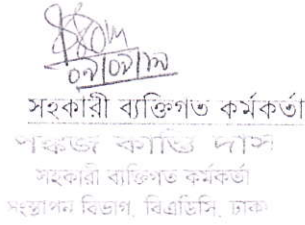 ০৯/০৯/১৯
সহকারী ব্যক্তিগত কর্মকর্তা
পঙ্কজ কান্তি দাস
সহকারী ব্যক্তিগত কর্মকর্তা
সংস্থাপন বিভাগ, বিএডিসি, ঢাকা